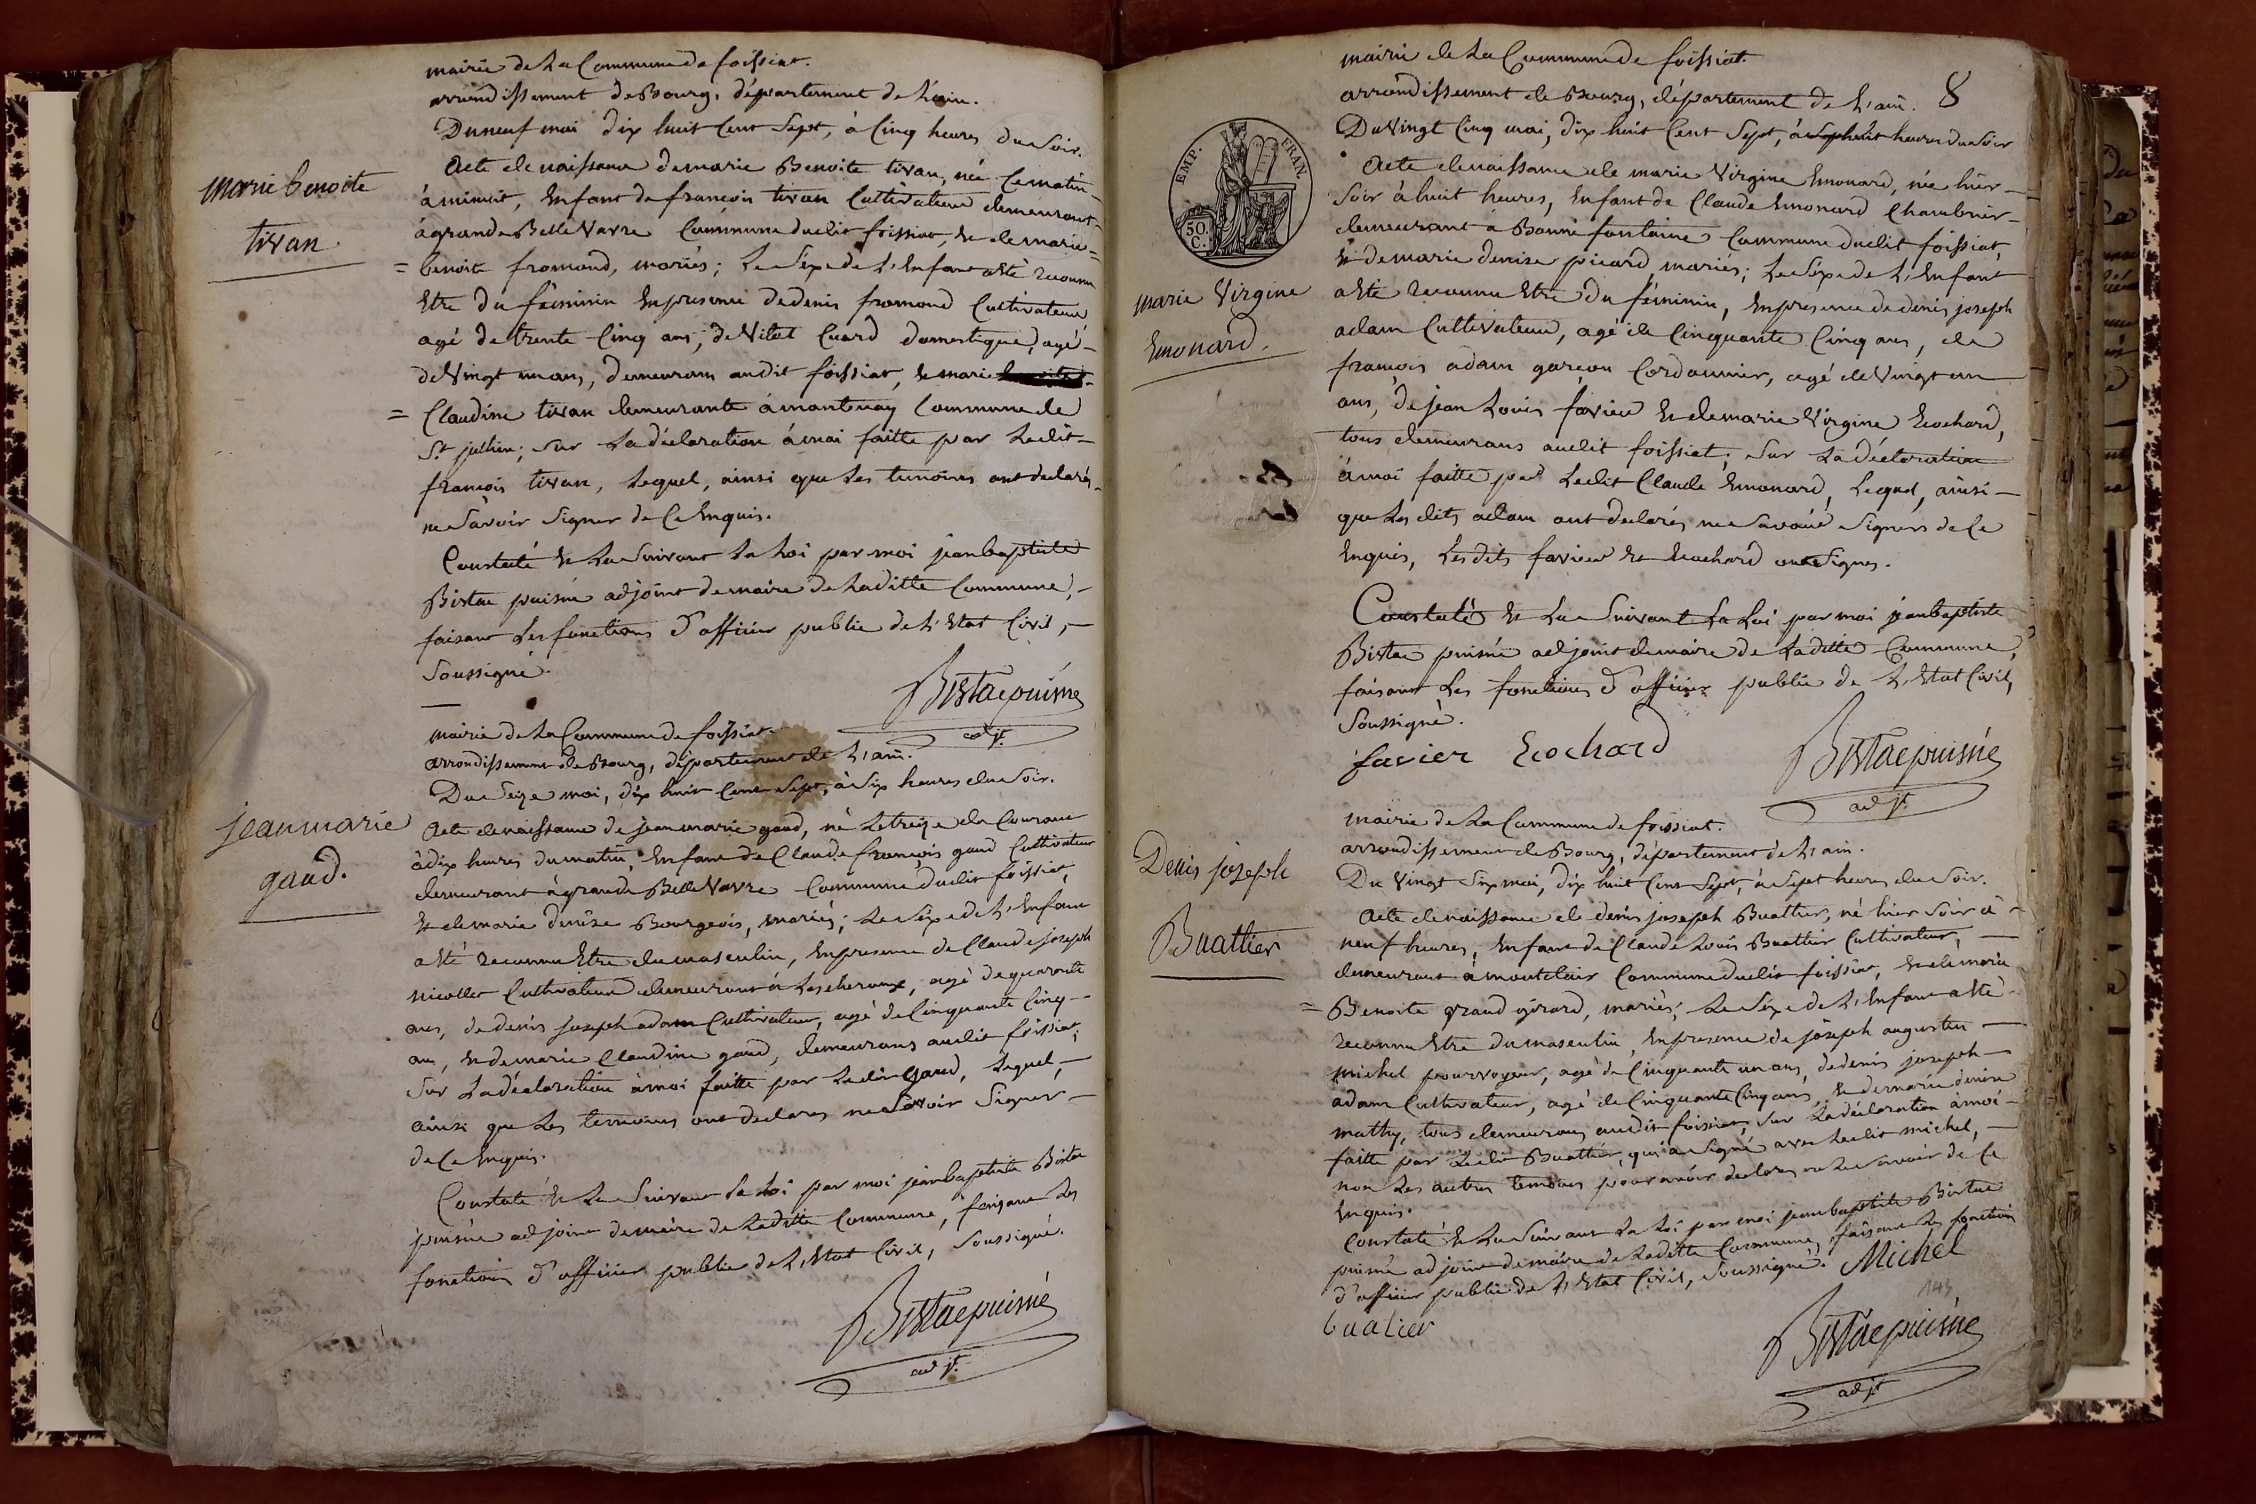 mairie de La Commune de foissiat.
arrondissement de Bourg, département de L'ain.
Du neuf mai dix huit Cent Sept, à Cinq heures du Soir.
Marie benoite
tivan
Acte de naissance de marie Benoite tivan, née Ce matin
à minuit, Enfant de françois tivan Cultivateur demeurant
à grande Belle Vavre Commune dudit foissiat, Et de marie =
= benoite fromond, mariés; Le Sexe de L'Enfant a Eté reconnu
Etre du féminin En presence de denis fromond Cultivateur
agé de trente Cinq ans, de Vital Cuard domestique, agé
de Vingt un ans, demeurans audit foissiat, Et marie
= Claudine tivan demeurante à montenay Commune de
St. jullien; Sur La déclaration à moi faitte par Ledit
françois tivan, Lequel, ainsi que Les temoins ont declarés
ne Savoir Signer de Ce Enquis.
Constaté Et Lu Suivant La Loi par moi jean baptiste
Bistae puisné adjoint de maire de Laditte Commune,
faisant Les fonctions d'officier public de L'Etat Civil,
Soussigné.
Bistae puisné
adjt.
mairie de La Commune de foissiat.
arrondissement de Bourg, département de L'ain.
Du Seize mai, dix huit Cent Sept, à Six heures du Soir.
jean marie
gaud.
Acte de naissance de jean marie gaud, né Le treize du Courant
à dix heures du matin, Enfant de Claude françois gaud Cultivateur
demeurant à grande Belle Vavre Commune dudit foissiat,
Et de marie denise Bourgeois, mariés; Le Sexe de L'Enfant
a Eté reconnu Etre du masculin, En presence de Claude joseph
nicollet Cultivateur demeurant à Lescheroux, agé de quarante
ans, de denis joseph adam Cultivateur, agé de Cinquante Cinq
ans, Et de marie Claudine gaud, demeurans audit foissiat;
Sur La déclaration à moi faitte par Ledit gaud, Lequel,
ainsi que Les temoins ont declarés ne Savoir Signer
de Ce Enquis.
Constaté Et Lu Suivant La Loi par moi jean baptiste Bistae
puisné adjoint de maire de Laditte Commune, faisant Les
fonctions d'officier public de L'Etat Civil, Soussigné.
Bistae puisné
adjt.
mairie de La Commune de foissiat.
arrondissement de Bourg, département de L'ain. 8
Du Vingt Cinq mai, dix huit Cent Sept, à huit heures du Soir
EMP. FRAN.
50. C.
Marie Virgine
Emonard.
Acte de naissance de marie Virgine Emonard, née hier
Soir à huit heures, Enfant de Claude Emonard Chambrier
demeurant à Bonne fontaine Commune dudit foissiat,
Et de marie denise picard, mariés; Le Sexe de L'Enfant
a Eté reconnu Etre du féminin, En presence de denis joseph
adam Cultivateur, agé de Cinquante Cinq ans, de
françois adam garçon Cordonnier, agé de Vingt un
ans, de jean Louis favier Et de marie Virgine Ecochard,
tous demeurans audit foissiat; Sur La déclaration
à moi faitte par Ledit Claude Emonard, Lequel, ainsi
que Les dits adam ont declarés ne Savoir Signer de Ce
Enquis, Les dits favier Et Ecochard ont Signés.
Constaté Et Lu Suivant La Loi par moi jean baptiste
Bistae puisné adjoint de maire de Laditte Commune,
faisant Les fonctions d'officier public de L'Etat Civil,
Soussigné.
favier Ecochard
Bistae puisné
adjt.
mairie de La Commune de foissiat.
arrondissement de Bourg, département de L'ain.
Du Vingt Six mai, dix huit Cent Sept, à Sept heures du Soir.
Denis joseph
Buattier
Acte de naissance de denis joseph Buattier, né hier Soir à
neuf heures, Enfant de Claude Louis Buattier Cultivateur,
demeurant à montclair Commune dudit foissiat, Et de marie
= Benoite grand girard, mariés; Le Sexe de L'Enfant a Eté
reconnu Etre du masculin, En presence de joseph augustin
michel pourvoyeur, agé de Cinquante un ans, de denis joseph
adam Cultivateur, agé de Cinquante Cinq ans, Et de marie denise
mathy, tous demeurans audit foissiat, Sur La déclaration à moi
faitte par Ledit Buattier, qui a Signé avec Ledit michel,
non Les autres temoins pour avoir declarés ne Le Savoir de Ce
Enquis.
Constaté Et Lu Suivant La Loi par moi jean baptiste Bistae
puisné adjoint de maire de Laditte Commune, faisant Les fonction
d'officier public de L'Etat Civil, Soussigné. Michel
145
buatier
Bistae puisné
adjt